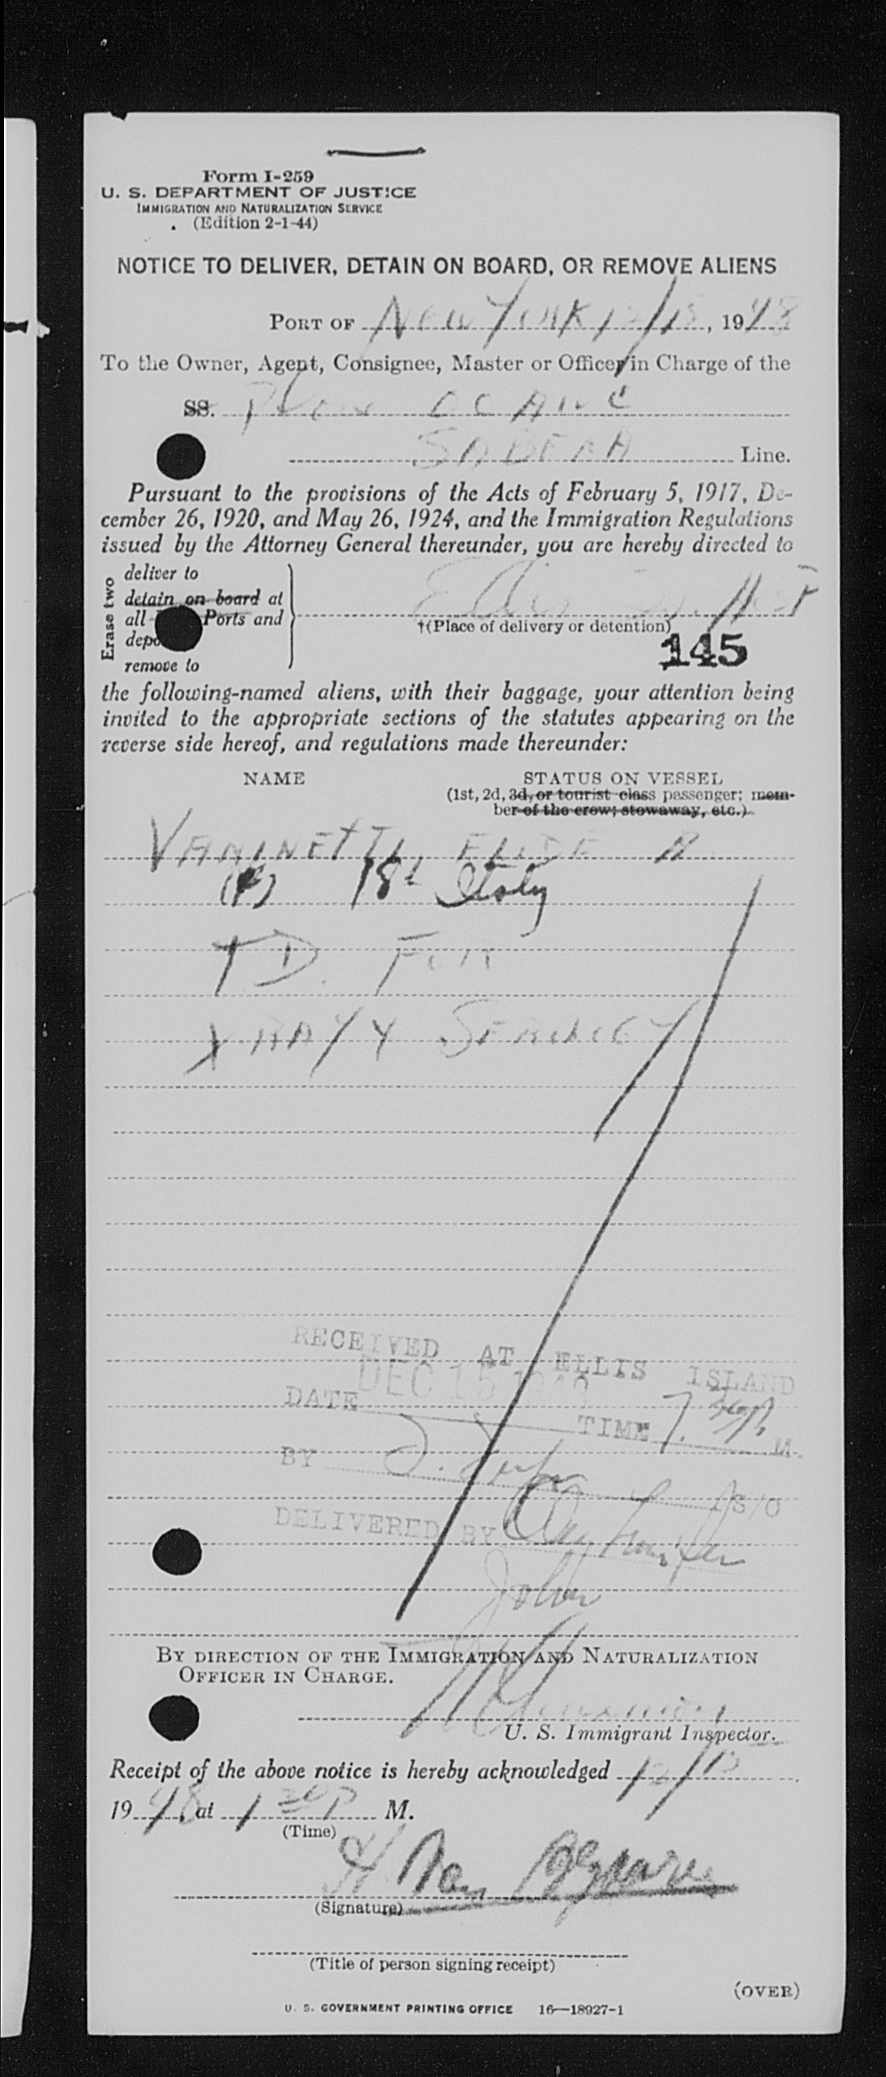 Form I-259
U. S. DEPARTMENT OF JUSTICE
IMMIGRATION AND NATURALIZATION SERVICE
(Edition 2-1-44)
NOTICE TO DELIVER, DETAIN ON BOARD, OR REMOVE ALIENS
PORT OF NEW YORK 12/15, 1948
To the Owner, Agent, Consignee, Master or Officer in Charge of the
SS. Plane OC AWC
SABENA Line.
Pursuant to the provisions of the Acts of February 5, 1917, De-
cember 26, 1920, and May 26, 1924, and the Immigration Regulations
issued by the Attorney General thereunder, you are hereby directed to
Erase two
deliver to
detain on board at
all Ports and
remove to
Ellis Is.
†(Place of delivery or detention)
145
the following-named aliens, with their baggage, your attention being
invited to the appropriate sections of the statutes appearing on the
reverse side hereof, and regulations made thereunder:
NAME STATUS ON VESSEL
(1st, 2d, 3d, or tourist class passenger; mem-
ber of the crew; stowaway, etc.)
VANINETTI ELIDE
18 Italy
TD. FOR
X RAY
RECEIVED AT ELLIS ISLAND
DEC 15 1948
DATE TIME 7. M.
BY IS/O
DELIVERED BY
John
BY DIRECTION OF THE IMMIGRATION AND NATURALIZATION
OFFICER IN CHARGE.
U. S. Immigrant Inspector.
Receipt of the above notice is hereby acknowledged 12/15
1948, at 1 30 P M.
(Time)
(Signature)
(Title of person signing receipt)
(OVER)
U. S. GOVERNMENT PRINTING OFFICE 16—18927-1